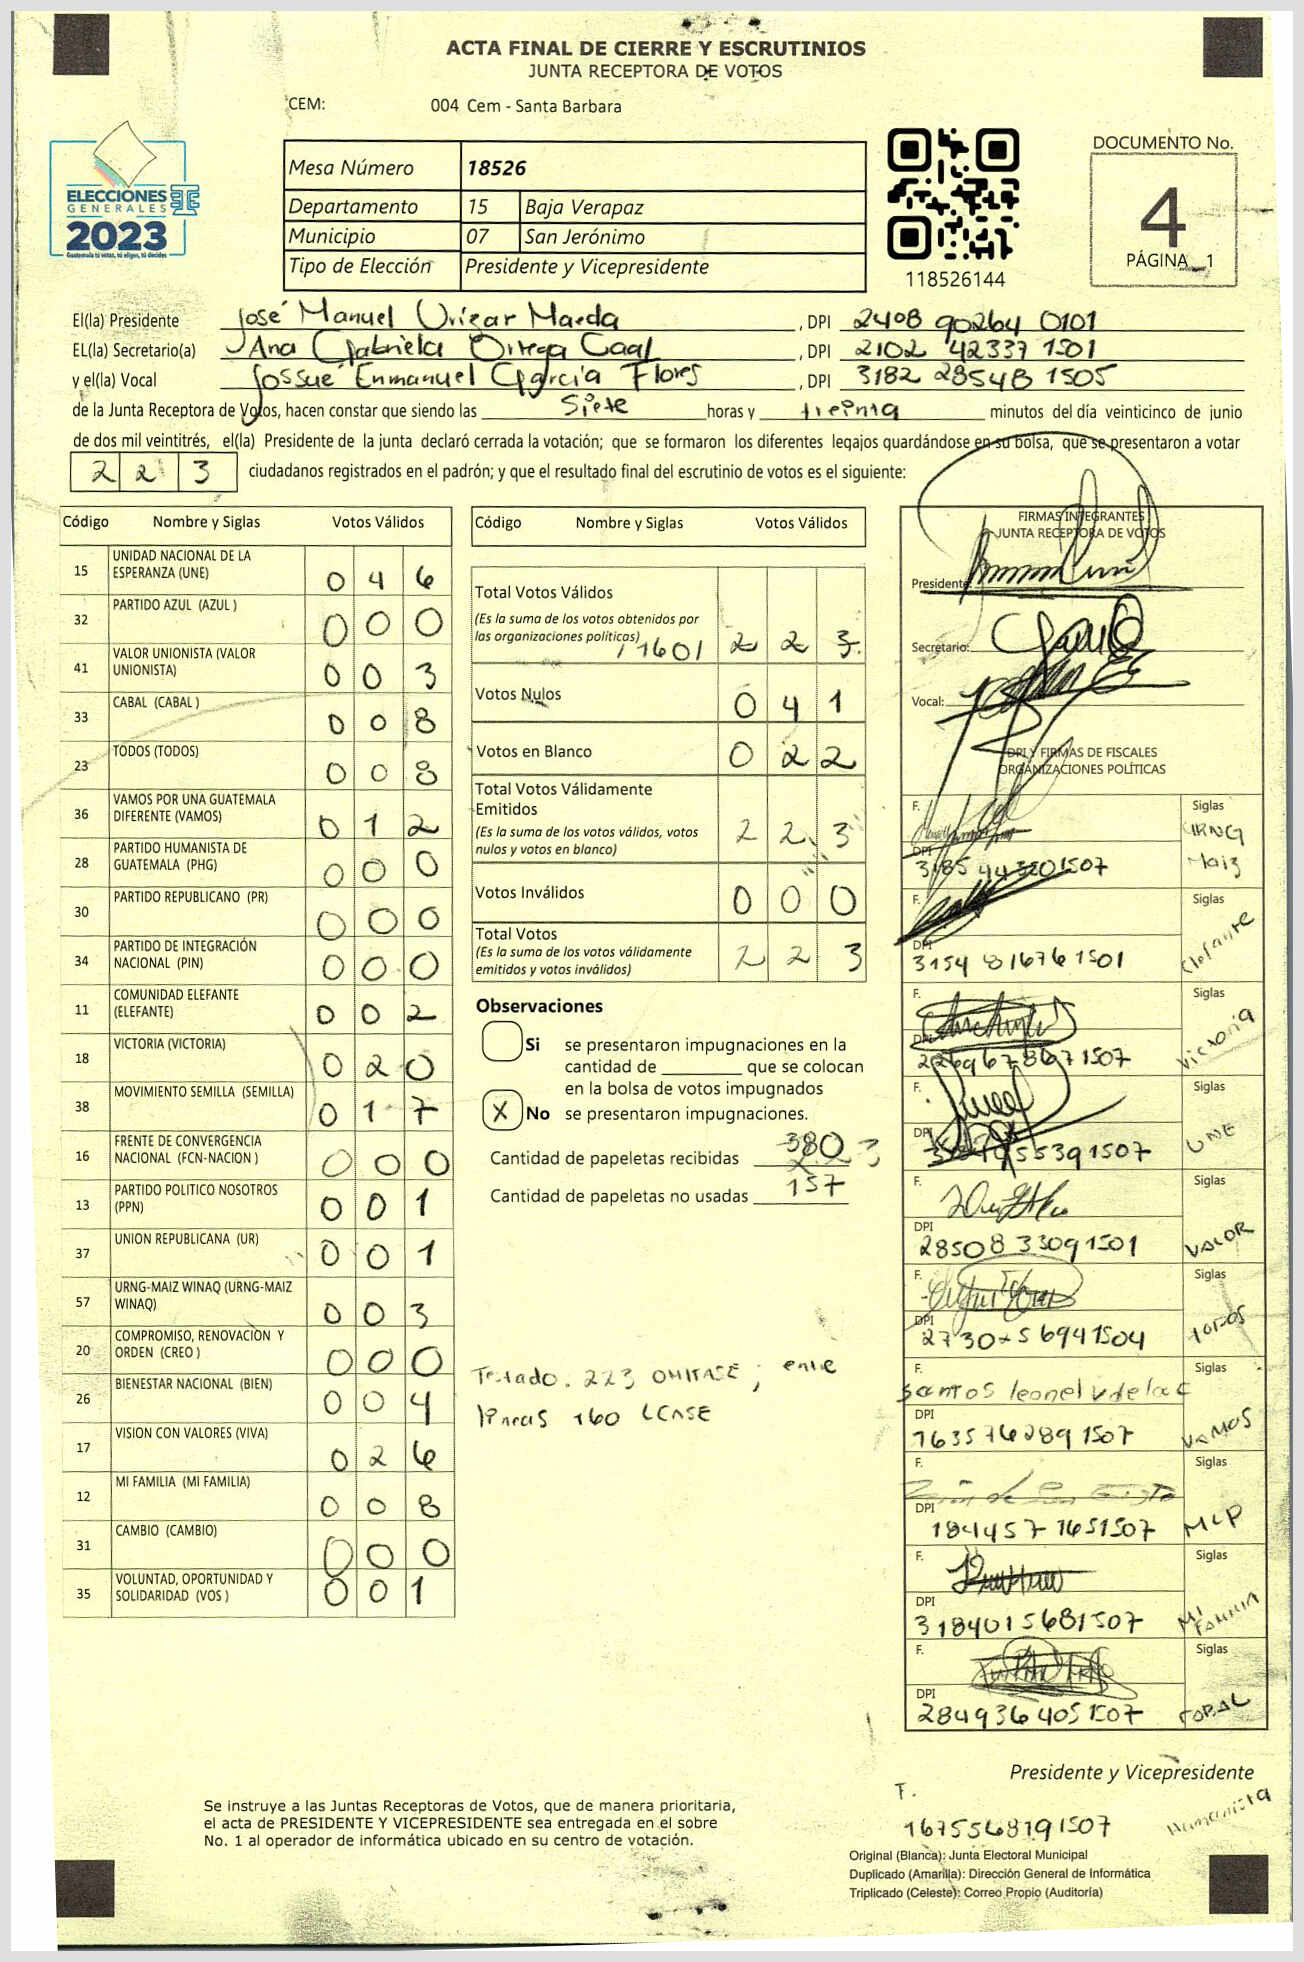 ACTA FINAL DE CIERRE Y ESCRUTINIOS
JUNTA RECEPTORA DE VOTOS
CEM: 004 Cem - Santa Barbara
ELECCIONES
GENERALES
2023
Guatemala tú votas, tú eliges, tú decides
Mesa Número 18526
Departamento 15 Baja Verapaz
Municipio 07 San Jerónimo
Tipo de Elección Presidente y Vicepresidente
118526144
DOCUMENTO No.
4
PÁGINA 1
El(la) Presidente José Manuel Urizar Maeda, DPI 2408 90264 0101
EL(la) Secretario(a) Ana Gabriela Ortega Caal, DPI 2102 42337 1501
y el(la) Vocal Jossué Enmanuel García Flores, DPI 3182 28548 1505
de la Junta Receptora de Votos, hacen constar que siendo las Siete horas y treinta minutos del día veinticinco de junio
de dos mil veintitrés, el(la) Presidente de la junta declaró cerrada la votación; que se formaron los diferentes legajos guardándose en su bolsa, que se presentaron a votar
223 ciudadanos registrados en el padrón; y que el resultado final del escrutinio de votos es el siguiente:
Código Nombre y Siglas Votos Válidos
15 UNIDAD NACIONAL DE LA ESPERANZA (UNE) 0 4 6
32 PARTIDO AZUL (AZUL ) 0 0 0
41 VALOR UNIONISTA (VALOR UNIONISTA) 0 0 3
33 CABAL (CABAL ) 0 0 8
23 TODOS (TODOS) 0 0 8
36 VAMOS POR UNA GUATEMALA DIFERENTE (VAMOS) 0 1 2
28 PARTIDO HUMANISTA DE GUATEMALA (PHG) 0 0 0
30 PARTIDO REPUBLICANO (PR) 0 0 0
34 PARTIDO DE INTEGRACIÓN NACIONAL (PIN) 0 0 0
11 COMUNIDAD ELEFANTE (ELEFANTE) 0 0 2
18 VICTORIA (VICTORIA) 0 2 0
38 MOVIMIENTO SEMILLA (SEMILLA) 0 1 7
16 FRENTE DE CONVERGENCIA NACIONAL (FCN-NACION ) 0 0 0
13 PARTIDO POLITICO NOSOTROS (PPN) 0 0 1
37 UNION REPUBLICANA (UR) 0 0 1
57 URNG-MAIZ WINAQ (URNG-MAIZ WINAQ) 0 0 3
20 COMPROMISO, RENOVACIÓN Y ORDEN (CREO ) 0 0 0
26 BIENESTAR NACIONAL (BIEN) 0 0 4
17 VISION CON VALORES (VIVA) 0 2 6
12 MI FAMILIA (MI FAMILIA) 0 0 8
31 CAMBIO (CAMBIO) 0 0 0
35 VOLUNTAD, OPORTUNIDAD Y SOLIDARIDAD (VOS ) 0 0 1
Código Nombre y Siglas Votos Válidos
Total Votos Válidos
(Es la suma de los votos obtenidos por
las organizaciones políticas) /160/ 2 2 3
Votos Nulos 0 4 1
Votos en Blanco 0 2 2
Total Votos Válidamente
Emitidos
(Es la suma de los votos válidos, votos
nulos y votos en blanco) 2 2 3
Votos Inválidos 0 0 0
Total Votos
(Es la suma de los votos válidamente
emitidos y votos inválidos) 2 2 3
Observaciones
Si se presentaron impugnaciones en la
cantidad de ________ que se colocan
en la bolsa de votos impugnados
X No se presentaron impugnaciones.
Cantidad de papeletas recibidas 380
Cantidad de papeletas no usadas 157
Testado. 223 OMITASE; entre
líneas 160 LEASE
FIRMAS INTEGRANTES
JUNTA RECEPTORA DE VOTOS
Presidente:
Secretario:
Vocal:
DPI Y FIRMAS DE FISCALES
ORGANIZACIONES POLÍTICAS
F. Siglas URNG Maiz
DPI 3185 443201507
F. Siglas Elefante
DPI 3154 816761501
F. Siglas Victoria
DPI 2269678671507
F. Siglas UNE
DPI
F. Siglas VALOR
DPI 28508 33091501
F. Siglas TODOS
DPI
F. Santos leonel Siglas VAMOS
DPI 1635762891507
F. Siglas MLP
DPI 184457 1651507
F. Siglas MI FAMILIA
DPI 3184015681507
F. Siglas
DPI 2849364051507
Presidente y Vicepresidente
F.
1675568191507 Humanista
Se instruye a las Juntas Receptoras de Votos, que de manera prioritaria,
el acta de PRESIDENTE Y VICEPRESIDENTE sea entregada en el sobre
No. 1 al operador de informática ubicado en su centro de votación.
Original (Blanca): Junta Electoral Municipal
Duplicado (Amarilla): Dirección General de Informática
Triplicado (Celeste): Correo Propio (Auditoría)